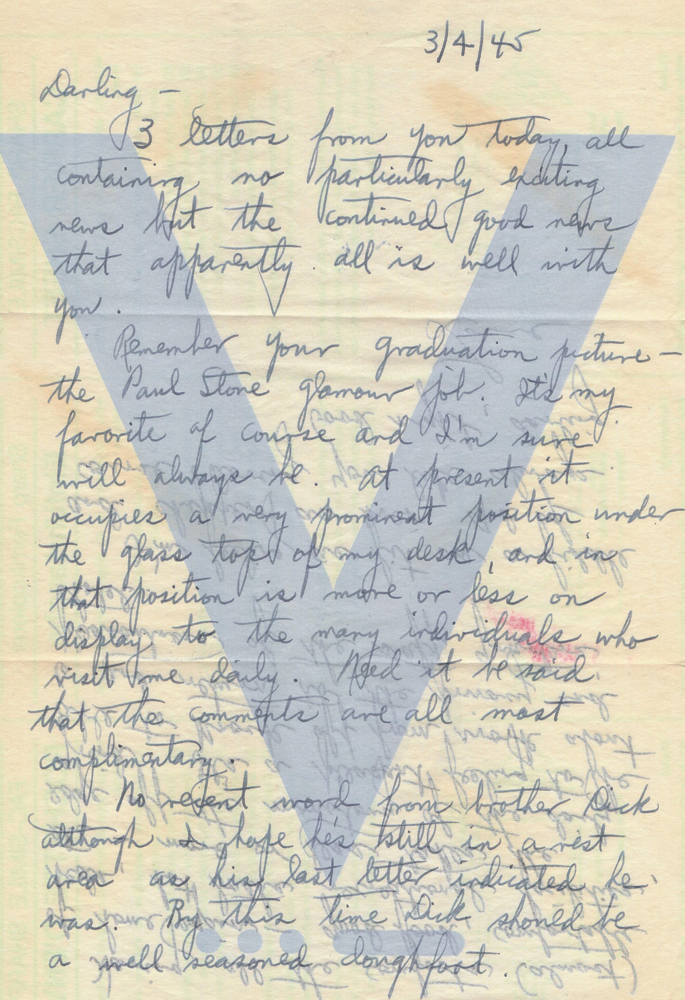 3/4/45
Darling —
3 letters from you today, all
containing no particularly exciting
news but the continued good news
that apparently all is well with
you.
Remember your graduation picture —
the Paul Stone glamour job. It's my
favorite of course and I'm sure
will always be. At present it
occupies a very prominent position under
the glass top of my desk, and in
that position is more or less on
display to the many individuals who
visit me daily. Need it be said
that the comments are all most
complimentary.
No recent word from brother Dick
although I hope he's still in a rest
area as his last letter indicated he
was. By this time Dick should be
a well seasoned doughfoot.